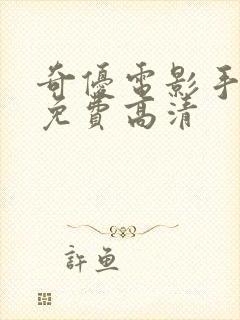 奇優電影手
免費高清
許魚